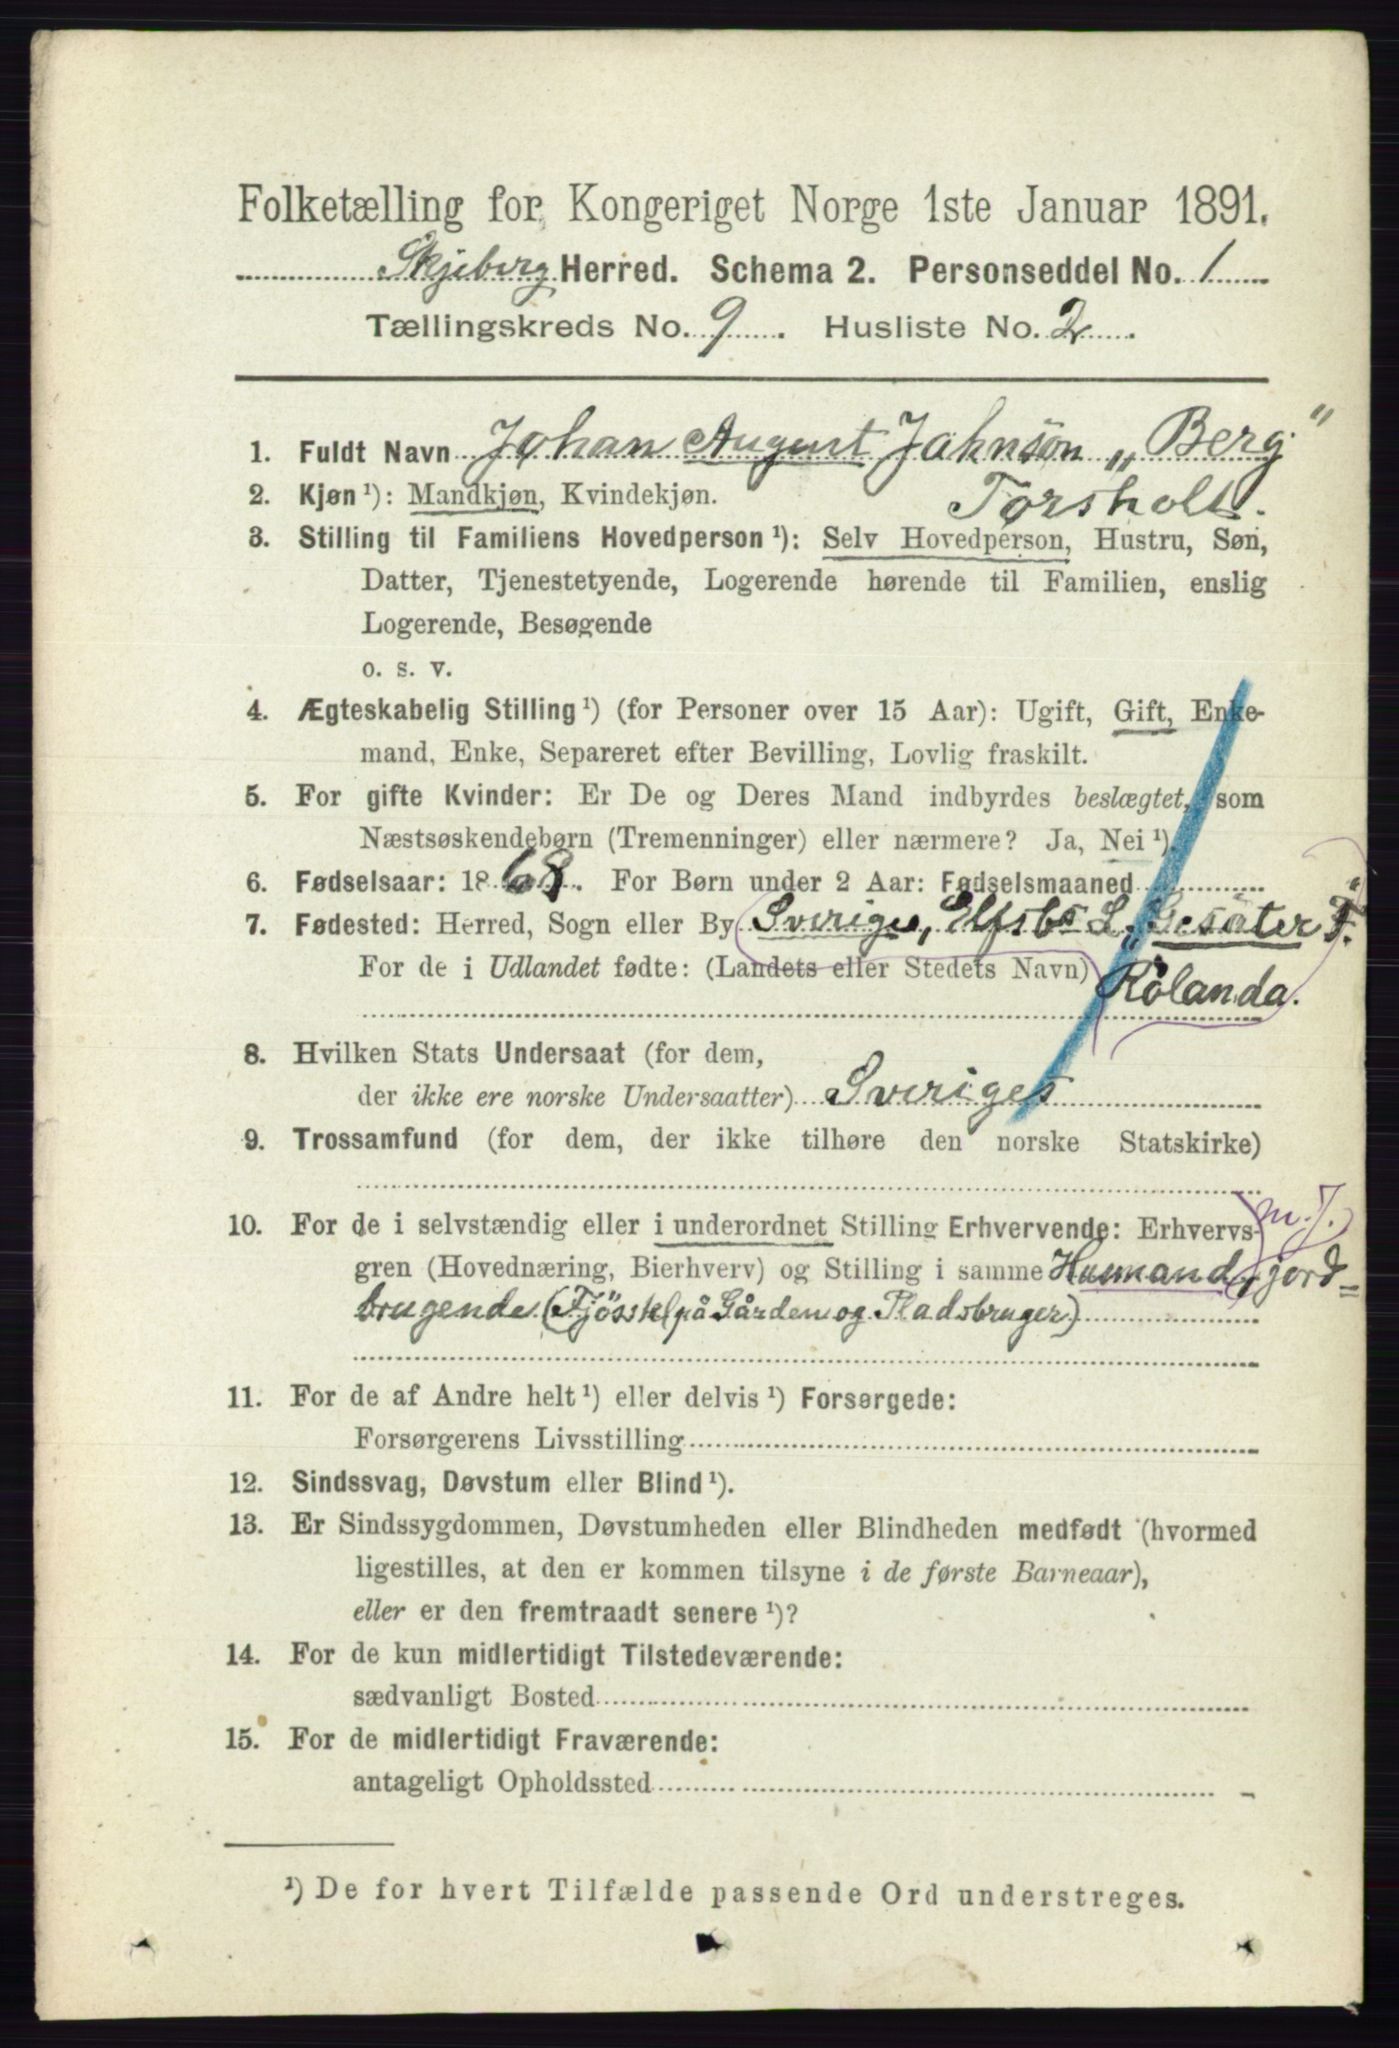 Folketælling for Kongeriget Norge 1ste Januar 1891.
Skjeberg Herred. Schema 2. Personseddel No. 1
Tællingskreds No. 9. Husliste No. 2.
1. Fuldt Navn Johan August Johnsön „Berg“
Torsholt.
2. Kjøn ¹): Mandkjøn, Kvindekjøn.
3. Stilling til Familiens Hovedperson ¹): Selv Hovedperson, Hustru, Søn,
Datter, Tjenestetyende, Logerende hørende til Familien, enslig
Logerende, Besøgende
o. s. v.
4. Ægteskabelig Stilling ¹) (for Personer over 15 Aar): Ugift, Gift, Enke-
mand, Enke, Separeret efter Bevilling, Lovlig fraskilt.
5. For gifte Kvinder: Er De og Deres Mand indbyrdes beslægtet, som
Næstsøskendebørn (Tremenninger) eller nærmere? Ja, Nei ¹).
6. Fødselsaar: 1868. For Børn under 2 Aar: Fødselsmaaned
7. Fødested: Herred, Sogn eller By Sverige, Elfsbs L. „Gesäter“ F.
For de i Udlandet fødte: (Landets eller Stedets Navn) Rölanda.
8. Hvilken Stats Undersaat (for dem,
der ikke ere norske Undersaatter) Sveriges
9. Trossamfund (for dem, der ikke tilhøre den norske Statskirke)
10. For de i selvstændig eller i underordnet Stilling Erhvervende: Erhvervs-
m. J.
gren (Hovednæring, Bierhverv) og Stilling i samme Husmand, jord=
brugende (Fjösstel på Gården og Pladsbruger)
11. For de af Andre helt ¹) eller delvis ¹) Forsørgede:
Forsørgerens Livsstilling
12. Sindssvag, Døvstum eller Blind ¹).
13. Er Sindssygdommen, Døvstumheden eller Blindheden medfødt (hvormed
ligestilles, at den er kommen tilsyne i de første Barneaar),
eller er den fremtraadt senere ¹)?
14. For de kun midlertidigt Tilstedeværende:
sædvanligt Bosted
15. For de midlertidigt Fraværende:
antageligt Opholdssted
¹) De for hvert Tilfælde passende Ord understreges.